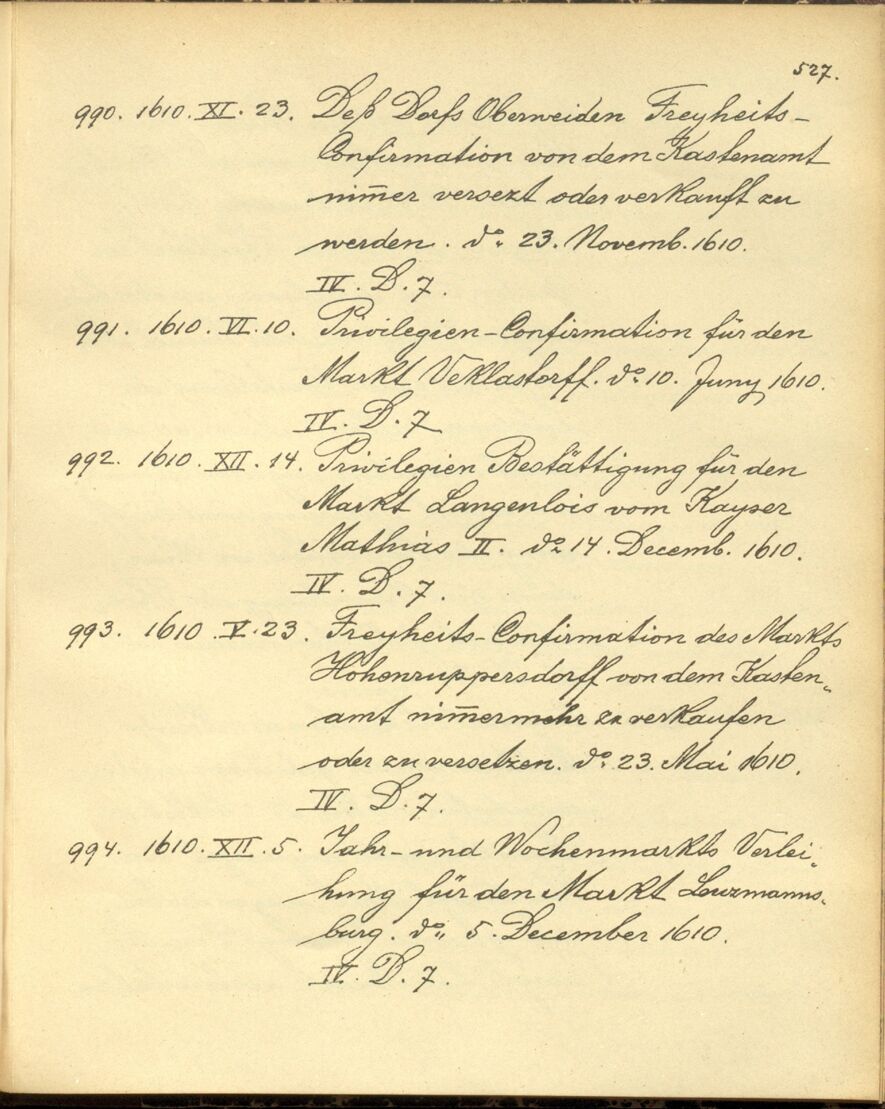 527.
990. 1610. XI. 23. Deß Dorfs Oberweiden Freyheits-
Confirmation von dem Kastenamt
nim̄er versezt oder verkauft zu
werden. do. 23. Novemb. 1610.
IV. D. 7.
991. 1610. VI. 10. Privilegien-Confirmation für den
Markt Veklastorff. do. 10. Juny 1610.
IV. D. 7
992. 1610. XII. 14. Privilegien Bestättigung für den
Markt Langenlois vom Kayser
Mathias II. do 14. Decemb. 1610.
IV. D. 7.
993. 1610. V. 23. Freyheits-Confirmation des Markts
Hohenruppersdorff von dem Kasten„
amt nim̄ermehr zu verkaufen
oder zu versetzen. do. 23. Mai 1610.
IV. D. 7.
994. 1610. XII. 5. Jahr- und Wochenmarkts Verlei„
hung für den Markt Leuzmanns„
burg. do„ 5. December 1610.
IV. D. 7.